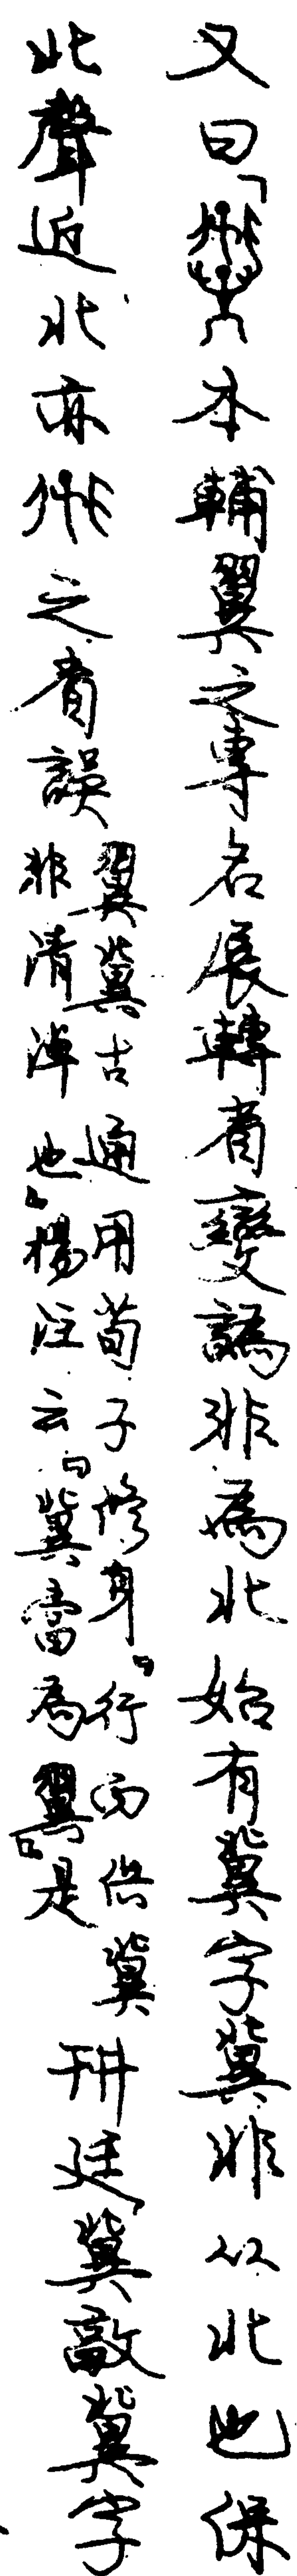 又曰「本輔翼之專名展轉省變譌非為北始有冀字冀非从北也保
此聲近北亦之省誤
翼冀古通用荀子修身「行而供冀
非清淖也」楊注云「冀當為翼」是
廷冀冀字